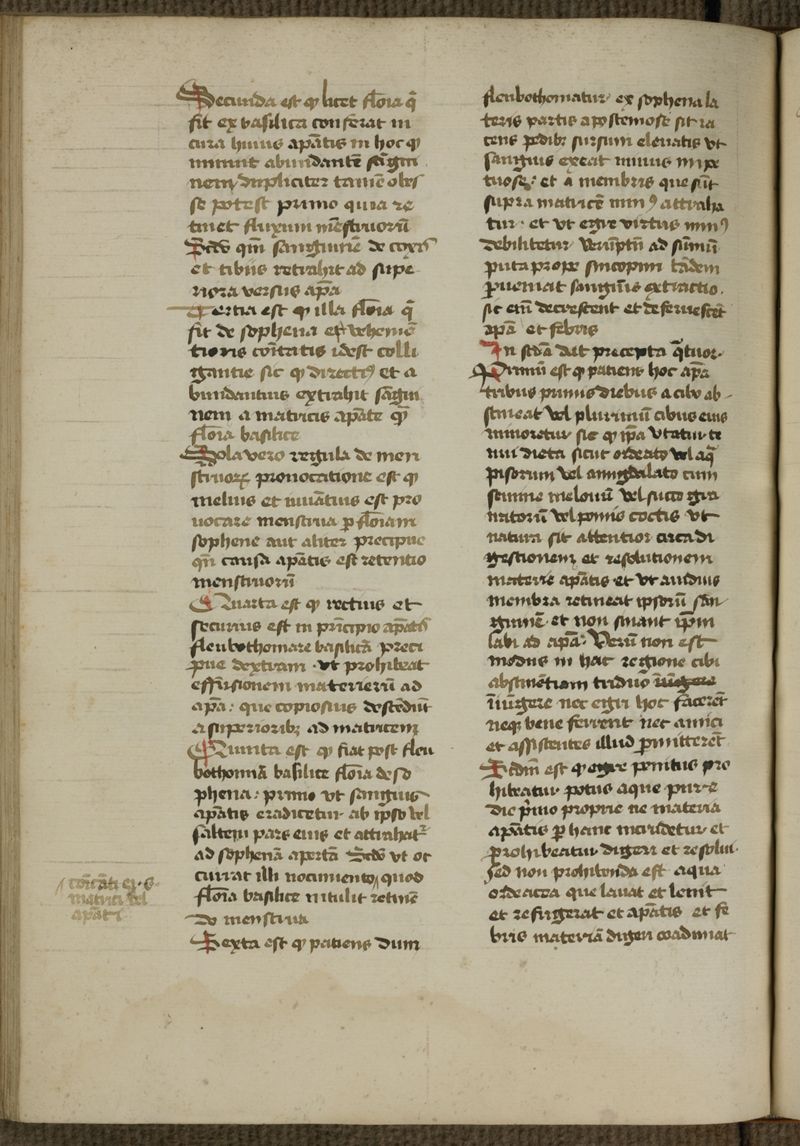 Secunda est qͥ licet flōia q̄
fit ex basilica conferat in
cura huius apātis in hoc qͥ
minuit abundantē sāgui
nem dupliciter tamē obes
se potest primo quia re
tinet fluxum mēstruorū
Scd̄o qm̄ sanguinē de coxis
et tibiis retrahit ad supe
riora versus apā
Tertia est qͥ illa flōia q̄
fit de sophena est vehemē
tioris cōitatis idest colli
gantie sic qͥ directiꝰ et a
bundantius extrahit sāgui
nem a matricis apāte qͣ
flōia basilice
Sola vero regula de men
struoꝝ prouocatione est qͥ
melius et iuuātius est pro
uocare menstrua ꝑ flōiam
sophene aut aliter precipue
qn̄ causa apātis est retentio
menstruorū
Quarta est qͥ rectius et
securius est in prīcipio apātis
fleubothomare basilicā preci
pue dextram · vt prohibeat
effusionem materierū ad
apā: que copiosius descēdūt
a superioribꝫ ad matricem
Quinta est qͥ fiat post fleu
bothomiā basilice flōia de so
phena: primo vt sanguis
apātis eradicetur ab ipso vel
saltem pars eius et attrahatr
ad sophenā apertā Scd̄o vt oc
currat illi nocumento quod
flōia basilice intulit retinē
do menstrua
Sexta est qͥ patiens dum
cōitāti ei⁹
matrici vel
apāti
fleubothomatur ex sophena la
teris partis apostemose sit ia
cens pedibꝫ sursum eleuatis vt
sanguis exeat minus impe
tuose: et a membris que sūt
supra matricē minꝰ attraha
tur · et vt egre virtus minꝰ
debilitetur Verūptn̄ ad sūmū
puta prope sincopim tādem
ꝑueniat sanguīs extractio.
sic em̄ decrescent et deferuescēt
apā et febris
In scd̄a dat precepta q̄tuor·
Primū est qͥ patiens hoc apā
tribus primis diebus a cibo ab
stineat vel plurimū cibus eius
minoretur sic qͥ ipā vtatur te
nui dieta sicut ordeato vel aq̄
pisorum vel amigdalato cum
semine melonū vel suco gra
natorū vel pomis coctis vt
natura sit attentior circa di
gestionem et resolutionem
materie apātis et vt auidius
membra retineat ipsorū san
guinē · et non sinant ip̄m
labi ad apā: Verū non est
modus in hac regione cibi
abstinētiam triduo
iniūgere nec egri hoc facerēt
neqꝫ bene ferrent nec amici
et assistentes illud ꝑmitterēt
Scd̄m est qͥ egre penitus pro
hibeatur potus aque pure
die pͥmo proprie ne materia
apātis ꝑ hanc incrudetur et
prohibeatur digeri et resolui.
sed non prohibenda est aqua
ordeacea que lauat et lenit
et refrigerat et apātis et fe
bris materiā digeri coadiuuat